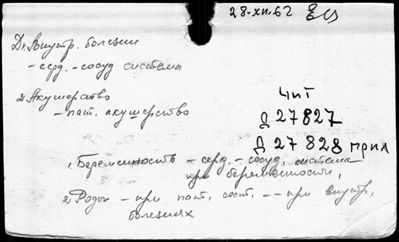 28-XII.62
Д. Внутр. болезни
- серд. - сосуд системы
2) Акушерство
- пат. акушерство
Чит
Д 27827
Д 27828 прил
1, Беременность - серд. - сосуд. система
при беременности,
2) Роды - при пат. сост. -- при внутр.
болезнях